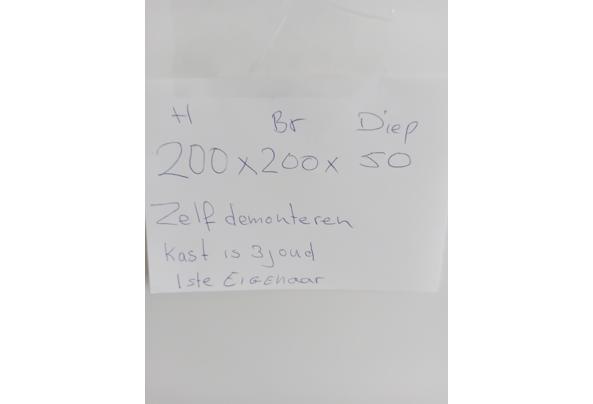 H Br Diep
200 x 200 x 50
Zelf demonteren
Kast is 3joud
1ste EIGENaar